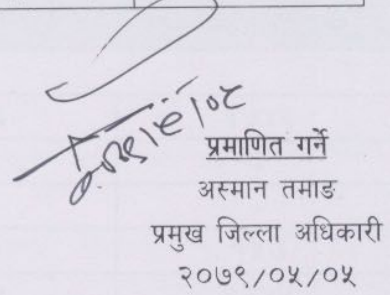 प्रमाणित गर्ने
अस्मान तमाङ
प्रमुख जिल्ला अधिकारी
२०७९/०५/०५